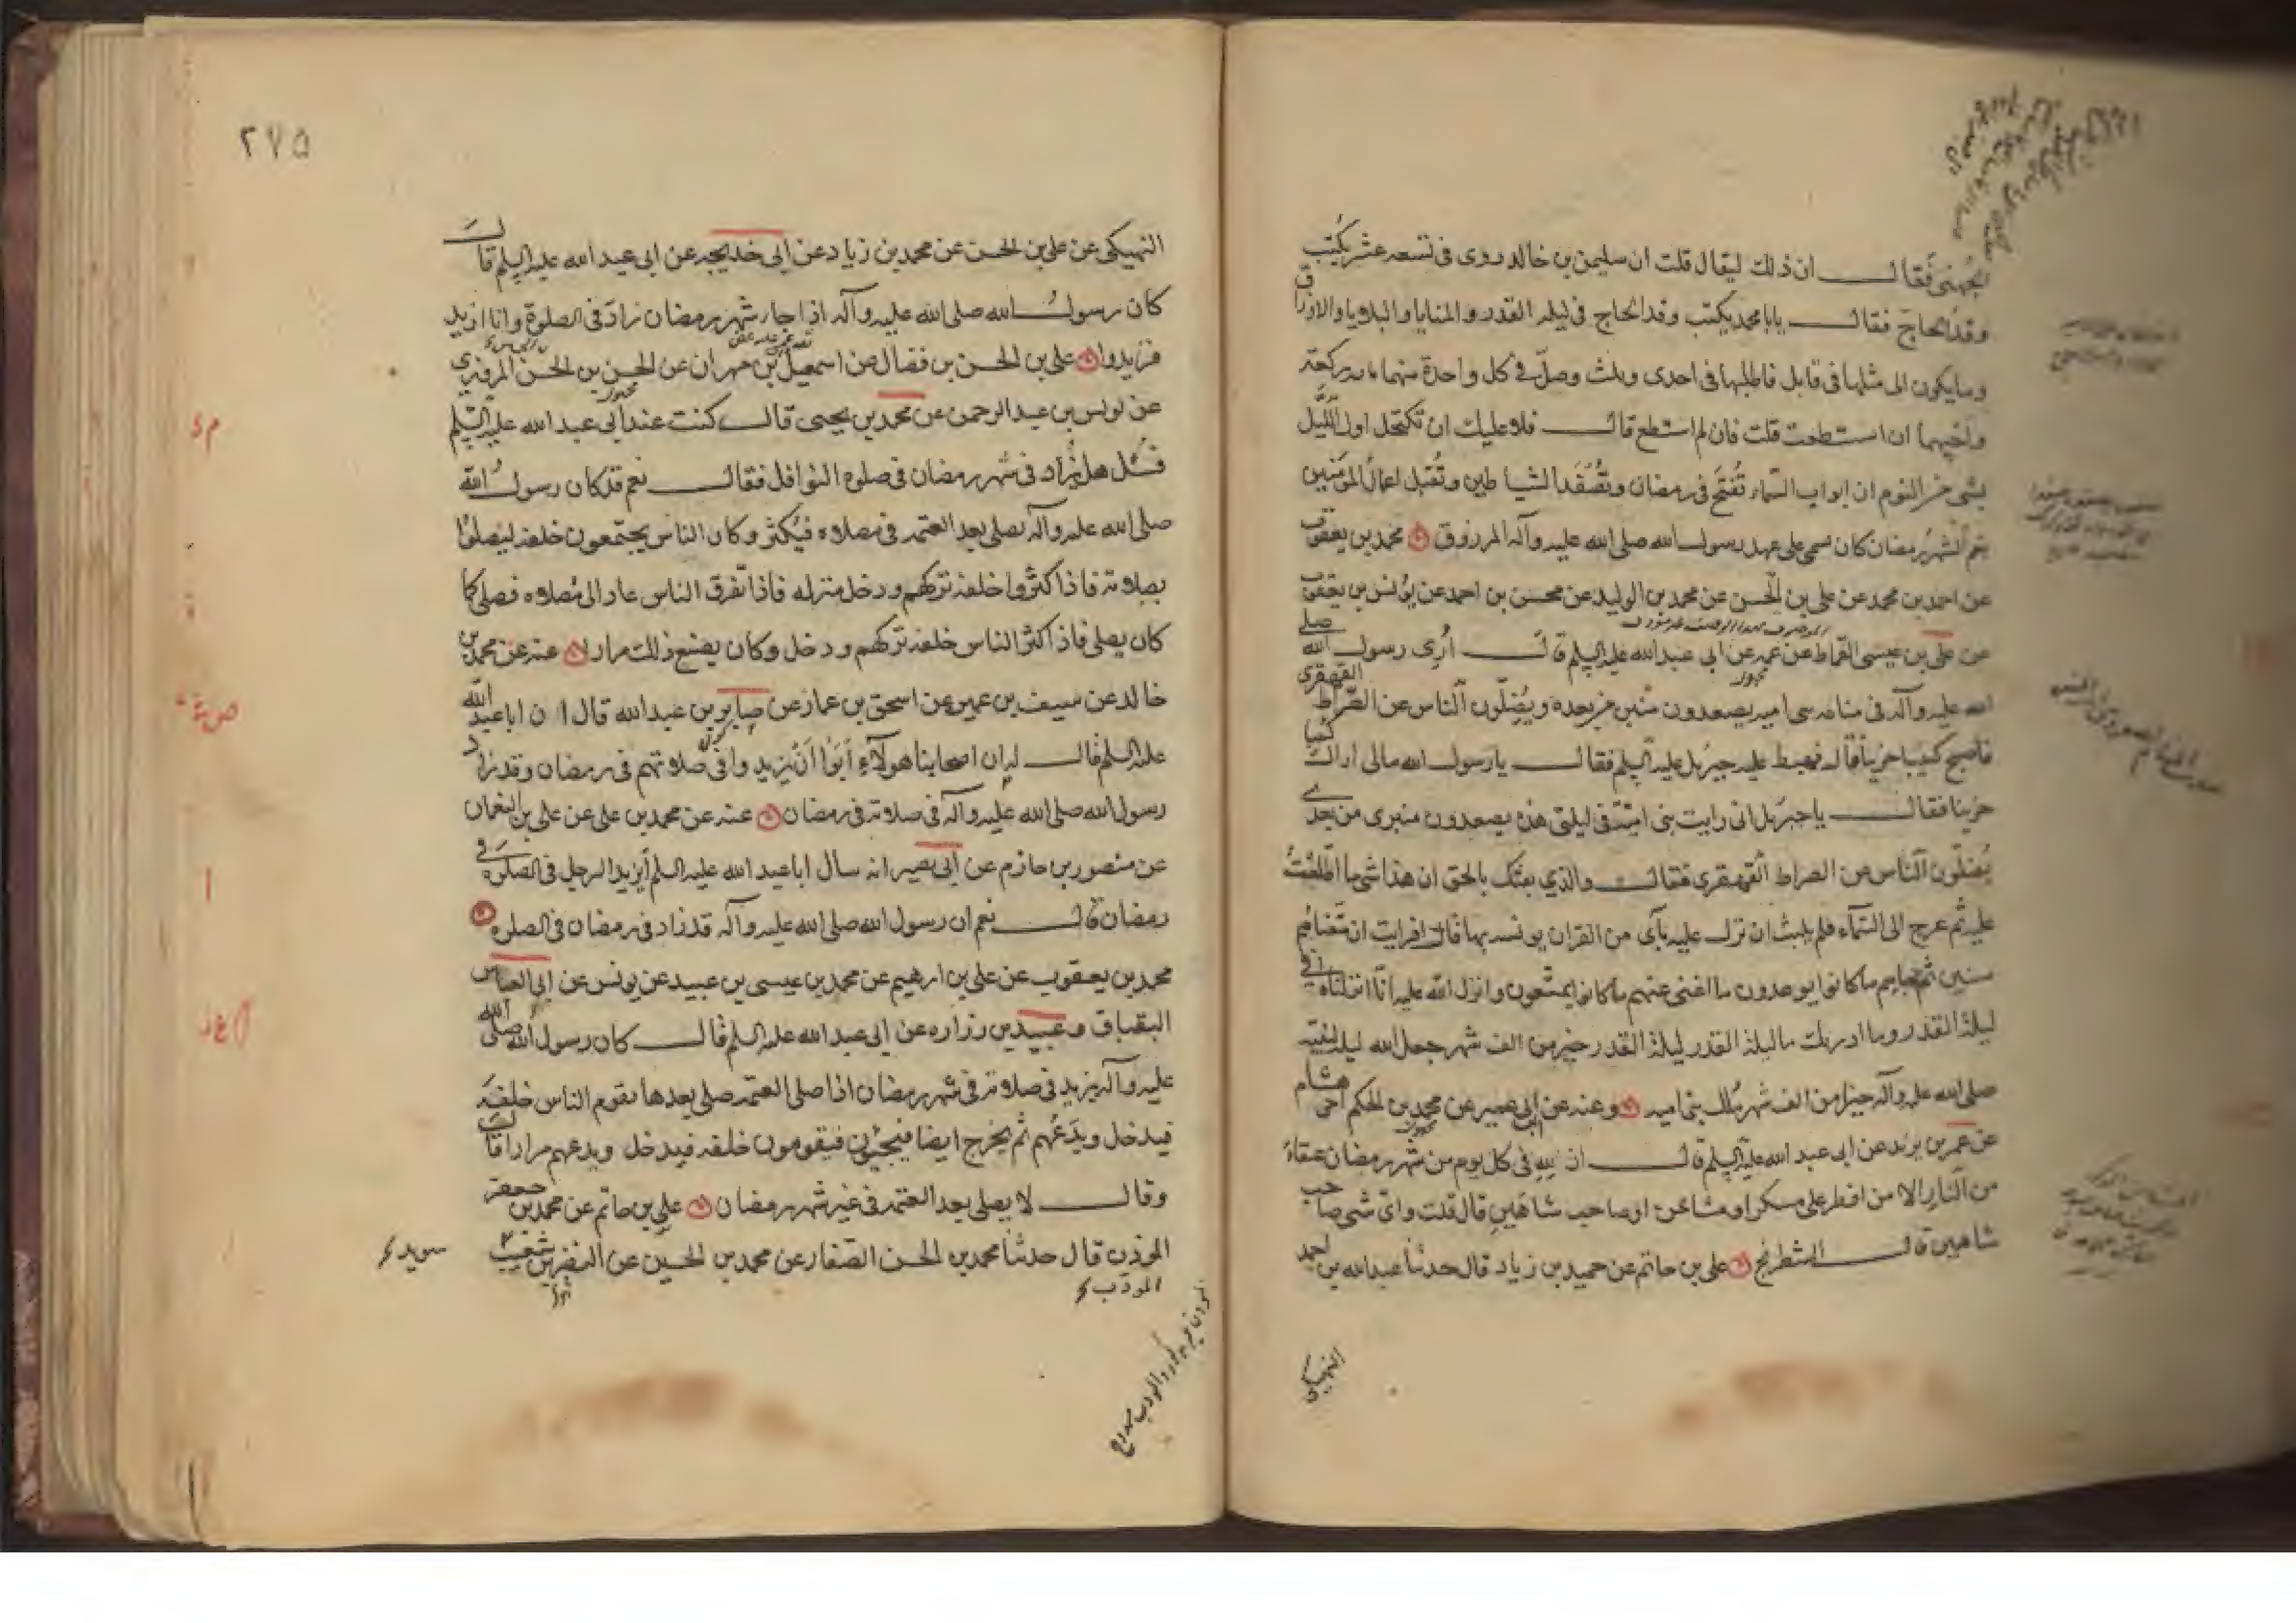 الجهنى فقال ان ذلك ليقال قلت ان سليمن بن خالد روى فى تسعه عشر يكتب
وفد الحاج فقال يابا محمد يكتب وفد الحاج فى ليله القدر و المنايا والبلايا والارزاق
وما يكون الى مثلها فى قابل فاطلبها فى احدى وثلث وصل فى كل واحدة منهما مايه ركعة
واحيهما ان استطعت قلت فان لم استطع قال فلا عليك ان تكتحل اول الليل
بشى من النوم ان ابواب السماء تفتح فى رمضان وتصفد الشياطين وتقبل اعمال المؤمنين
نعم الشهر رمضان كان يسمى على عهد رسول الله صلى الله عليه وآله المرزوق محمد بن يعقوب
عن احمد بن محمد عن على بن الحسن عن محمد بن الوليد عن محسن بن احمد عن يونس بن يعقوب
عن على بن عيسى القماط عن عمه عن ابى عبد الله عليه السلم قال أرى رسول الله صلى
الله عليه وآله فى منامه بنى اميه يصعدون منبره من بعده ويضلون الناس عن الصراط القهقرى
فاصبح كئيبا حزينا قال فهبط عليه جبرئل عليه السلم فقال يا رسول الله مالى اراك كئيبا
حزينا فقال يا جبرئل انى رايت بنى امية فى ليلتى هذه يصعدون منبرى من بعدى
يضلون الناس عن الصراط القهقرى فقال والذي بعثك بالحق ان هذا شى ما اطلعت
عليه ثم عرج الى السماء فلم يلبث ان نزل عليه بآى من القران يونسه بها قال افرايت ان متعناهم
سنين ثم جاءهم ما كانوا يوعدون ما اغنى عنهم ما كانوا يمتعون وانزل الله عليه انا انزلناه فى
ليلة القدر وما ادريك ما ليلة القدر ليلة القدر خير من الف شهر جعل الله ليله لنبيه
صلى الله عليه وآله خيرا من الف شهر ملك بنى اميه وعنه عن ابن ابى عمير عن محمد بن الحكم اخى هشام
عن عمر بن يزيد عن ابى عبد الله عليه السلم قال ان لله فى كل يوم من شهر رمضان عتقاء
من النار الا من افطر على مسكر او مشاحن او صاحب شاهين قال قلت واى شى صاحب
شاهين قال الشطرنج على بن حاتم عن حميد بن زياد قال حدثنا عبد الله بن احمد
النهيكى
٢٧٥
النهيكى عن على بن الحسن عن محمد بن زياد عن ابى خديجه عن ابى عبد الله عليه السلم قال
كان رسول الله صلى الله عليه وآله اذا جاء شهر رمضان زاد فى الصلوة وانا ازيد
فزيدوا على بن الحسن بن فضال عن اسمعيل بن مهران عن الحسن بن الحسن المروزى
عن يونس بن عبد الرحمن عن محمد بن يحيى قال كنت عند ابى عبد الله عليه السلم
فسئل هل يزاد فى شهر رمضان فى صلوه النوافل فقال نعم قد كان رسول الله
صلى الله عليه وآله يصلى بعد العتمه فى مصلاه فيكثر وكان الناس يجتمعون خلفه ليصلوا
بصلاته فاذا كثروا خلفه تركهم ودخل منزله فاذا تفرق الناس عاد الى مصلاه فصلى كما
كان يصلى فاذا كثر الناس خلفه تركهم ودخل وكان يصنع ذلك مرارا عنه عن محمد بن
خالد عن سيف بن عميره عن اسحق بن عمار عن صابر بن عبد الله قال ان ابا عبد الله
عليه السلم قال لى ان اصحابنا هولاء أبوا أن يزيدوا فى صلاتهم فى رمضان وقد زاد
رسول الله صلى الله عليه وآله فى صلاته فى رمضان عنه عن محمد بن على عن على بن النعمان
عن منصور بن حازم عن ابى بصير انه سال ابا عبد الله عليه السلم أيزيد الرجل فى الصلوة فى
رمضان قال نعم ان رسول الله صلى الله عليه وآله قد زاد فى رمضان فى الصلوه
محمد بن يعقوب عن على بن ابرهيم عن محمد بن عيسى بن عبيد عن يونس عن ابى العباس
البقباق وعبيد بن زراره عن ابى عبد الله عليه السلم قال كان رسول الله صلى الله
عليه وآله يزيد فى صلاته فى شهر رمضان اذا صلى العتمه صلى بعدها فيقوم الناس خلفه
فيدخل ويدعهم ثم يخرج ايضا فيجيئون فيقومون خلفه فيدخل ويدعهم مرارا قال
وقال لا يصلى بعد العتمه فى غير شهر رمضان على بن حاتم عن محمد بن جعفر
الموذن قال حدثنا محمد بن الحسن الصفار عن محمد بن الحسين عن النضر بن شعيب
سويد
المودب